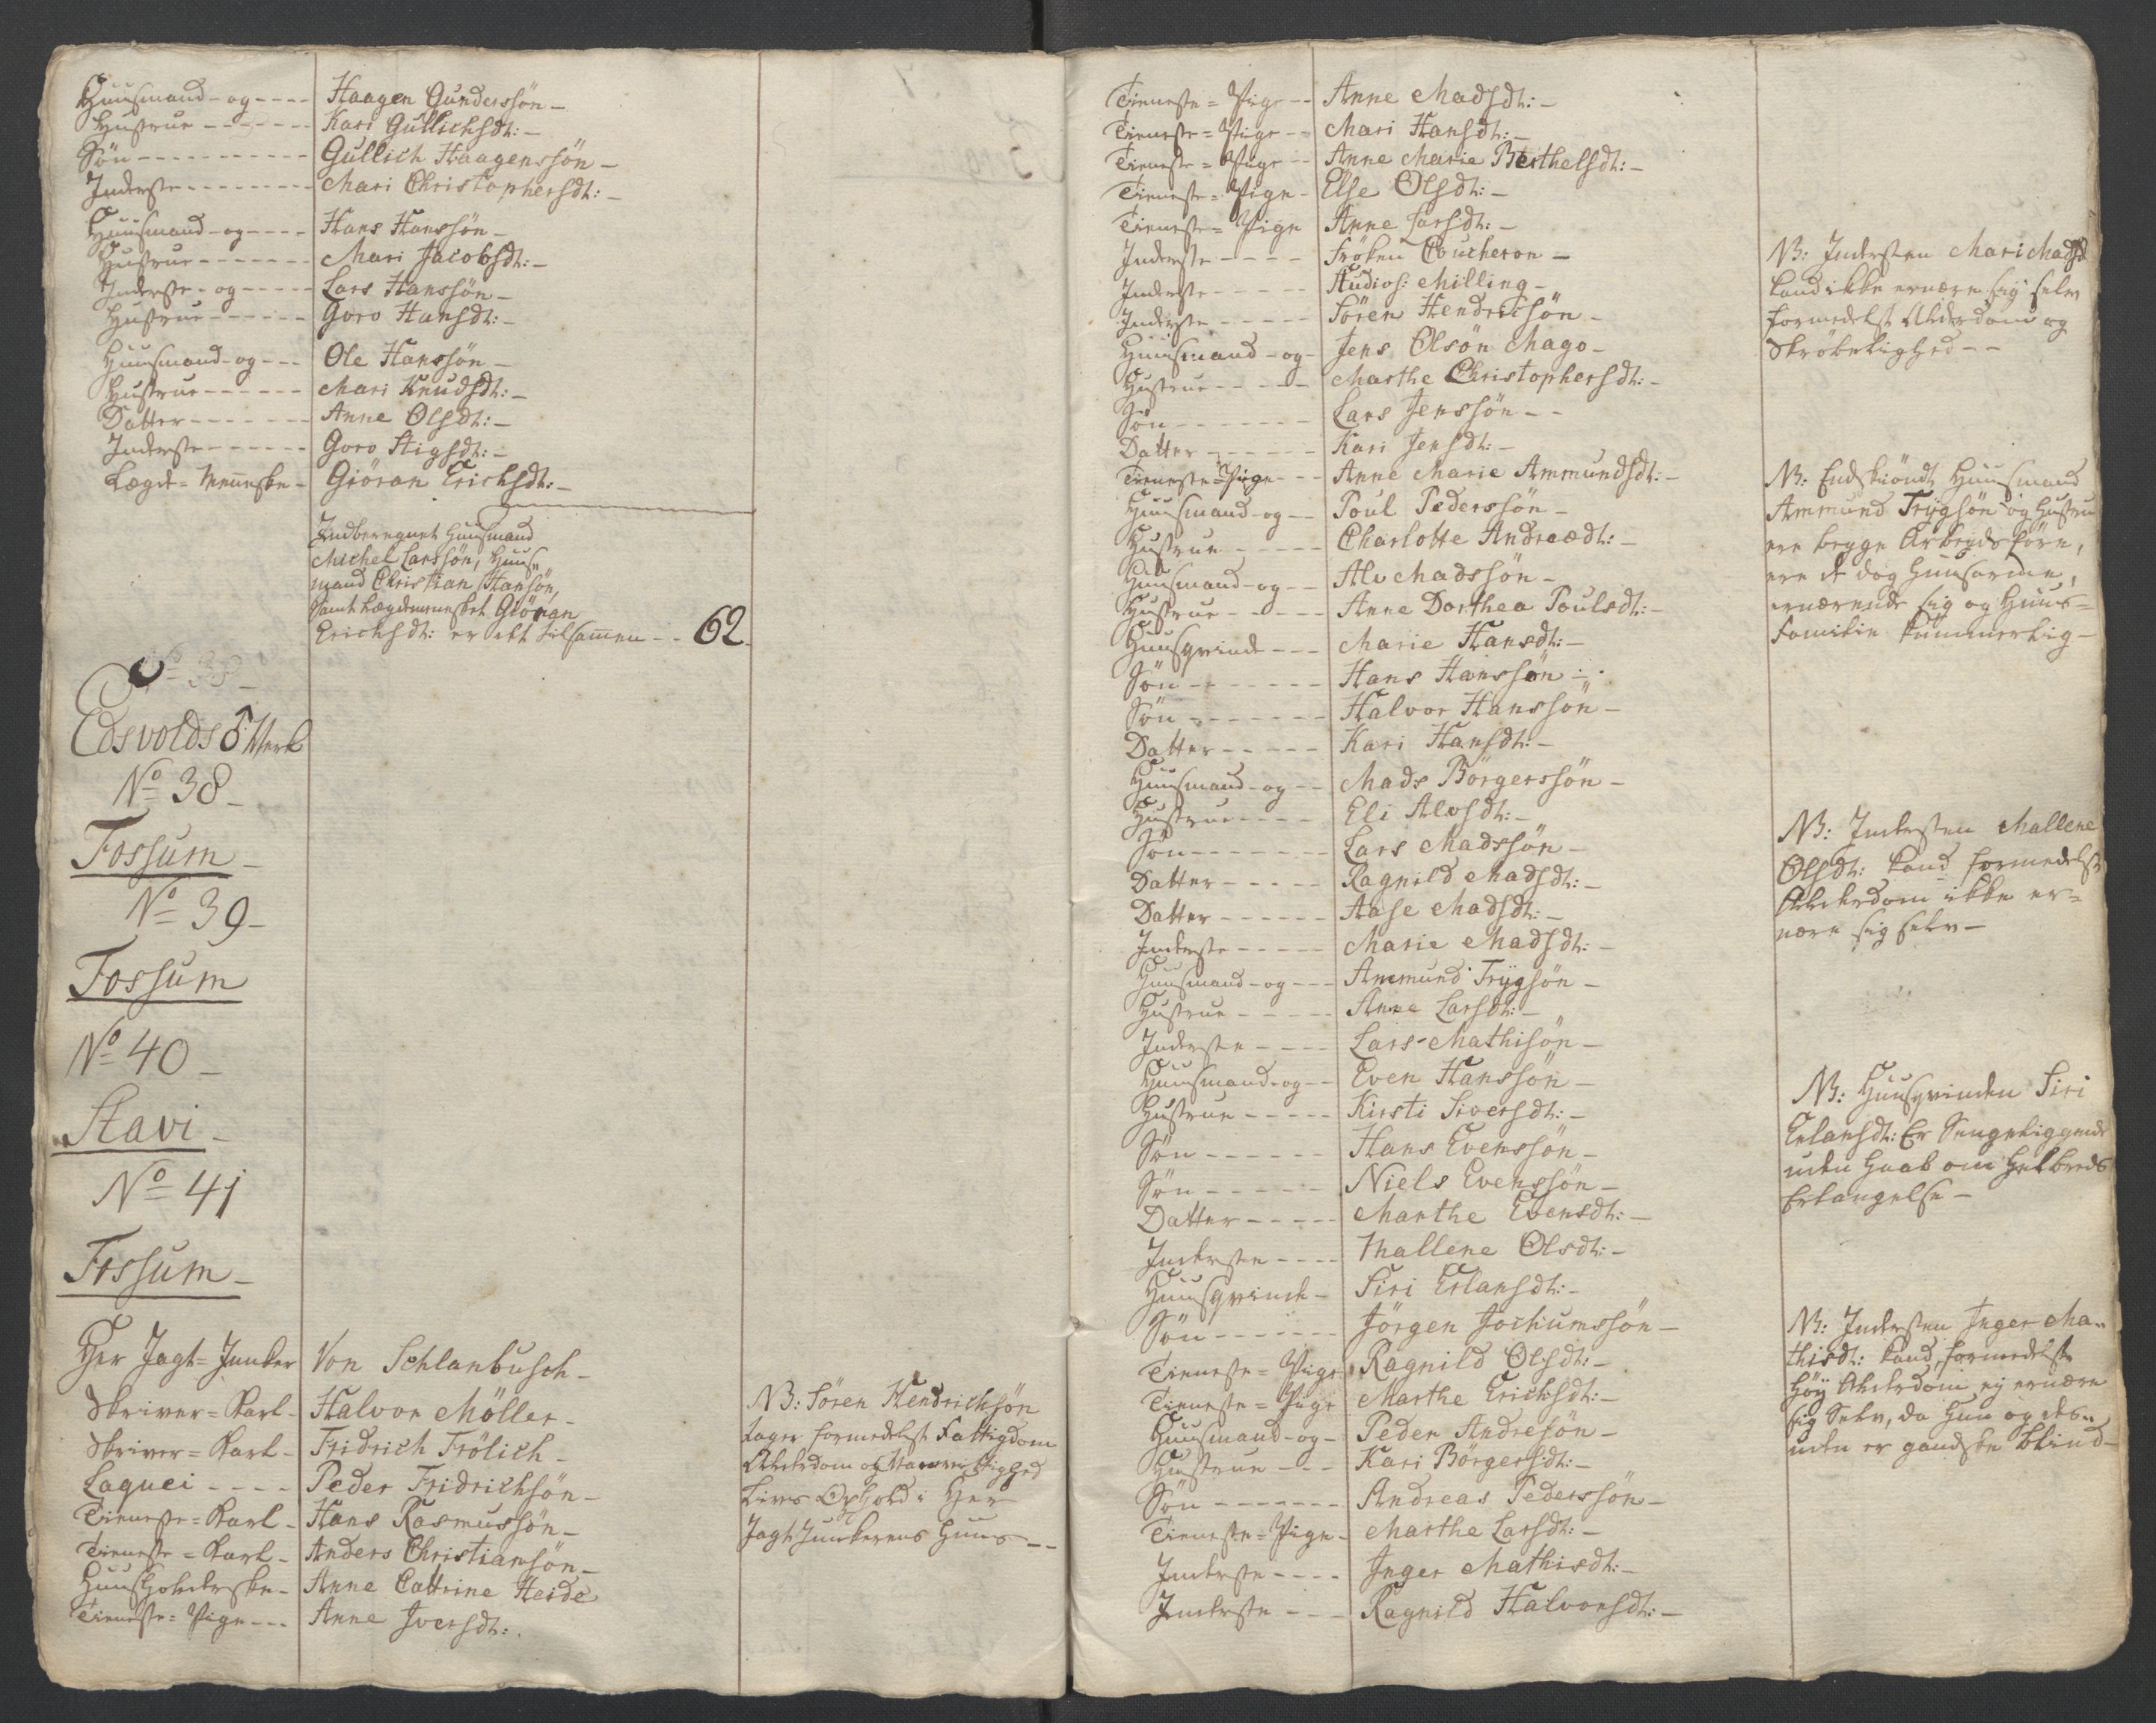 Huusmand - og - - - - Haagen Gunderssön -
Hustrue - - - - - - - Kari Gullichsdt: -
Sön - - - - - - - - - - - Gullich Haagenssön -
Inderste - - - - - - - - Mari Christophersdt: -
Huusmand - og - - - - Hans Hanssön -
Hustrue - - - - - - - Mari Jacobsdt: -
Inderste - og - - - - - Lars Hanssön -
Hustrue - - - - - - Goro Hansdt: -
Huusmand - og - - - Ole Hanssön -
Hustrue - - - - - - Mari Knudsdt: -
Datter - - - - - - - Anne Olsdt: -
Inderste - - - - - - Goro Stigsdt: -
Lægd = Menneske - Giöran Erichsdt: -
Indberegnet Huusmand
Michel Larssön, Huus-
mand Christian Hansön,
samt Lægdemennesket Giöran
Erichsdt: er det tilsammen - - 62.
No 38 -
Edsvolds Verk
No 38 -
Fossum -
No 39 -
Fossum
No 40 -
Stavi -
No 41
Fossum -
Her Jagt = Junker Von Schlanbusch -
Skriver = Karl - Halvor Möller -
Skriver = Karl - Fridrich Frölich -
Laquei - - - - Peder Fridrichsön -
Tieneste = Karl - Hans Rasmussön -
Tieneste = Karl - Anders Christiansön -
Huusholderske - Anne Cattrine Heide
Tieneste = Pige - - - Anne Iversdt: .
NB: Sören Hendrichsön
tager formedelst Fattigdom
Alderdom og Vanvittighed
Livs Ophold i Her
Jagt Junkerens Huus - -
Tieneste = Pige - - Anne Madsdt: -
Tieneste = Pige - - Mari Hansdt: -
Tieneste = Pige - - Anne Marie Berthelsdt: -
Tieneste = Pige - Else Olsdt: -
Tieneste = Pige Anne Larsdt: -
Inderste - - - - Fröken Coucheron -
Inderste - - - - - Studios: Milling -
Inderste - - - - - Sören Hendricsön -
Huusmand - og - Jens Olsön Mago -
Hustrue - - - - - Marthe Christophersdt: -
Sön - - - - - - - Lars Jenssön - -
Datter - - - - - - Kari Jensdt: -
Tieneste = Pige - - - Anne Marie Ammundsdt: -
Huusmand - og - - Poul Pederssön -
Hustrue - - - - - Charlotte Andreædt: -
Huusmand - og - - Alv Madssön -
Hustrue - - - - - Anne Dorthea Poulsdt: -
Huusqvinde - - - Marie Hansdt: -
Sön - - - - - - - Hans Hanssön -
Sön - - - - - - - Halvor Hanssön -
Datter - - - - - Kari Hansdt: -
Huusmand - og - - Mads Börgerssön -
Hustrue - - - - Eli Alvsdt: -
Sön - - - - - - - Lars Madssön -
Datter - - - - - Ragnild Madsdt: -
Datter - - - - - - Aase Madsdt: -
Inderste - - - - - Marie Madsdt: -
Huusmand - og - - - Ammund Trygsön -
Hustrue - - - - - Anne Larsdt: -
Inderste - - - - Lars Mathisön -
Huusmand - og - - Even Hanssön -
Hustrue - - - - - Kirsti Siversdt: -
Sön - - - - - - Hans Evenssön -
Sön - - - - - - Niels Evenssön -
Datter - - - - - Marthe Evensdt: -
Inderste - - - - Mallene Olsdt: -
Huusqvinde - Siri Erlansdt: -
Sön - - - - - - - Jörgen Jochumssön -
Tieneste = Pige Ragnild Olsdt: -
Tieneste = Pige Marthe Erichsdt: -
Huusmand - og - Peder Andresön -
Hustrue - - - Kari Börgersdt: -
Sön - - - - - - - Andreas Pederssön -
Tieneste = Pige - Marthe Larsdt: -
Inderste - - - - Inger Mathisdt: -
Inderste - - - Ragnild Halvorsdt: -
NB: Indersten Mari Madsd
kand ikke ernære sig selv
formedelst Alderdom og
Skröbelighed - -
NB: Endskiöndt Huusmand
Ammund Trygsön og Hustru
ere begge Arbeydsföre,
ere de dog Huusarme,
ernærende sig og Huus=
familie kummerlig -
NB: Indersten Mallene
Olsdt: kand formedelst
Alderdom ikke er=
nære sig selv -
NB: Huusqvinden Siri
Erlansdt: Er Sengeliggende
uden Haab om Helbreds
Erlangelse -
NB: Indersten Inger Ma-
thisdt: kand, formedelst
höy Alderdom ey ernære
sig Selv, da hun og des-
uden er gandske blind -